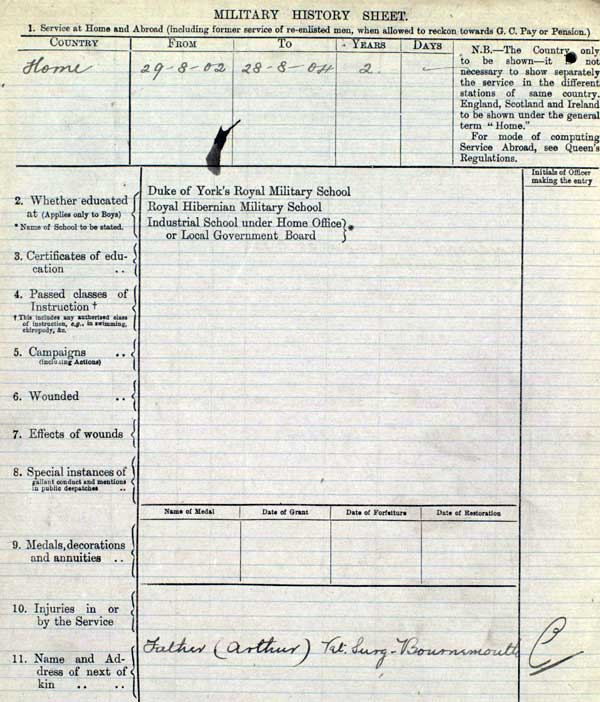 MILITARY HISTORY SHEET.
1. Service at Home and Abroad (including former service of re-enlisted men, when allowed to reckon towards G. C. Pay or Pension.)
COUNTRY FROM TO YEARS DAYS
Home 29-8-02 28-8-04 2 –
N.B.—The Country only
to be shown—it not
necessary to show separately
the service in the different
stations of same country.
England, Scotland and Ireland
to be shown under the general
term "Home."
For mode of computing
Service Abroad, see Queen's
Regulations.
Initials of Officer
making the entry
2. Whether educated
at (Applies only to Boys)
* Name of School to be stated.
Duke of York's Royal Military School
Royal Hibernian Military School
Industrial School under Home Office
or Local Government Board } *
3. Certificates of edu-
cation ..
4. Passed classes of
Instruction †
† This includes any authorised class
of instruction, e.g., in swimming,
chiropody, &c.
5. Campaigns ..
(including Actions)
6. Wounded ..
7. Effects of wounds
8. Special instances of
gallant conduct and mentions
in public despatches ..
Name of Medal Date of Grant Date of Forfeiture Date of Restoration
9. Medals, decorations
and annuities ..
10. Injuries in or
by the Service
11. Name and Ad-
dress of next of
kin .. ..
Father (Arthur) Vet. Surg - Bournemouth